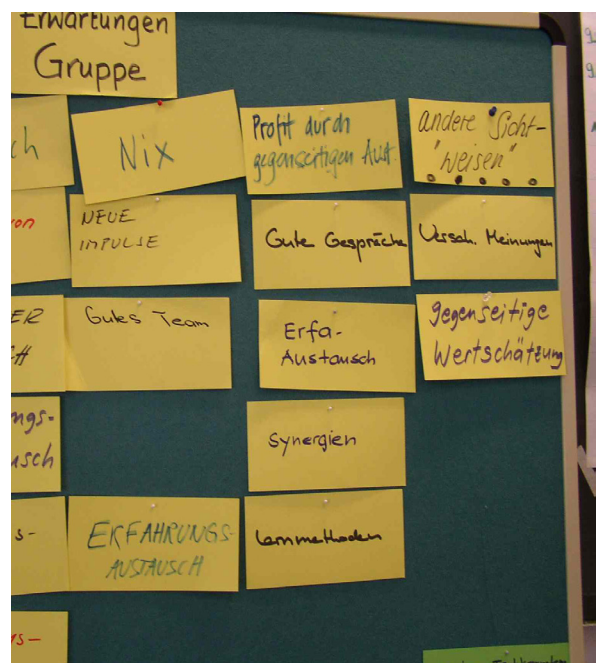 Erwartungen
Gruppe
ch
Nix
Profit durch
gegenseitigen Aust.
andere Sicht-
"weisen"
on
NEUE
IMPULSE
Gute Gespräche
Versch. Meinungen
ER
CH
Gutes Team
Erfa-
Austausch
gegenseitige
Wertschätzung
ngs-
usch
Synergien
s-
ERFAHRUNGS-
AUSTAUSCH
Lernmethoden
ns-